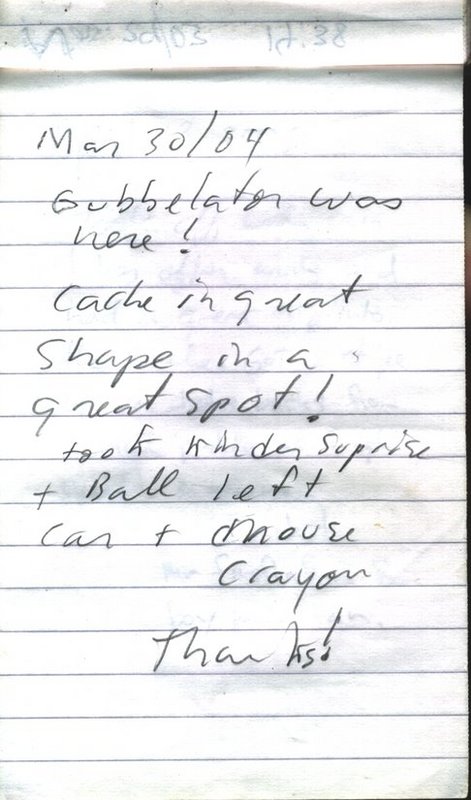 Mar 30/04
Gubbelator was
here!
Cache in great
Shape in a
great spot!
took kinder suprise
+ Ball left
car + mouse
crayon
Thanks!